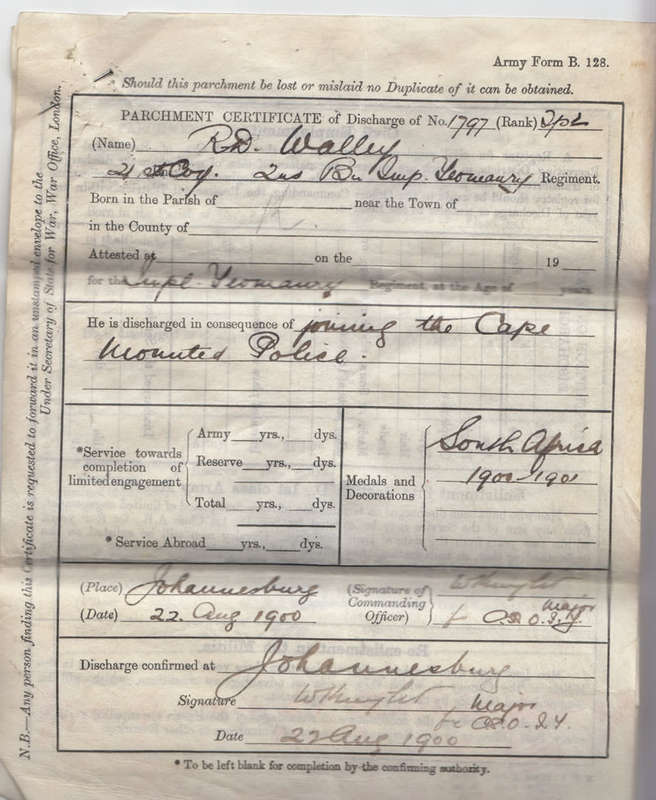 Army Form B. 128.
Should this parchment be lost or mislaid no Duplicate of it can be obtained.
PARCHMENT CERTIFICATE of Discharge of No. 1797 (Rank) Tpr
(Name) R.D. Walley
21 st Coy. 2nd Bn Imp. Yeomanry Regiment.
Born in the Parish of near the Town of
in the County of
Attested at on the 19
for the Impl. Yeomanry Regiment, at the Age of years.
He is discharged in consequence of joining the Cape
Mounted Police.
*Service towards completion of limited engagement
Army yrs., dys.
Reserve yrs., dys.
Total yrs., dys.
* Service Abroad yrs., dys.
Medals and Decorations
South Africa
1900-1901
(Place) Johannesburg
(Date) 22 Aug 1900
(Signature of Commanding Officer)
Major
f C.S.O. I.Y.
Discharge confirmed at Johannesburg
Signature Major
C.S.O. I.Y.
Date 22 Aug 1900
* To be left blank for completion by the confirming authority.
N.B.—Any person finding this Certificate is requested to forward it in an unstamped envelope to the
Under Secretary of State for War, War Office, London.